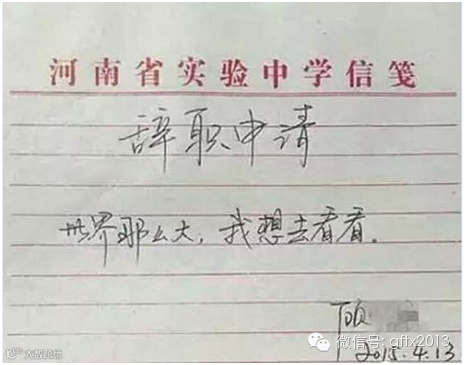 河南省实验中学信笺
辞职申请
世界那么大,我想去看看.
顾
微信号: qftx2013
2015.4.13
大数跨境